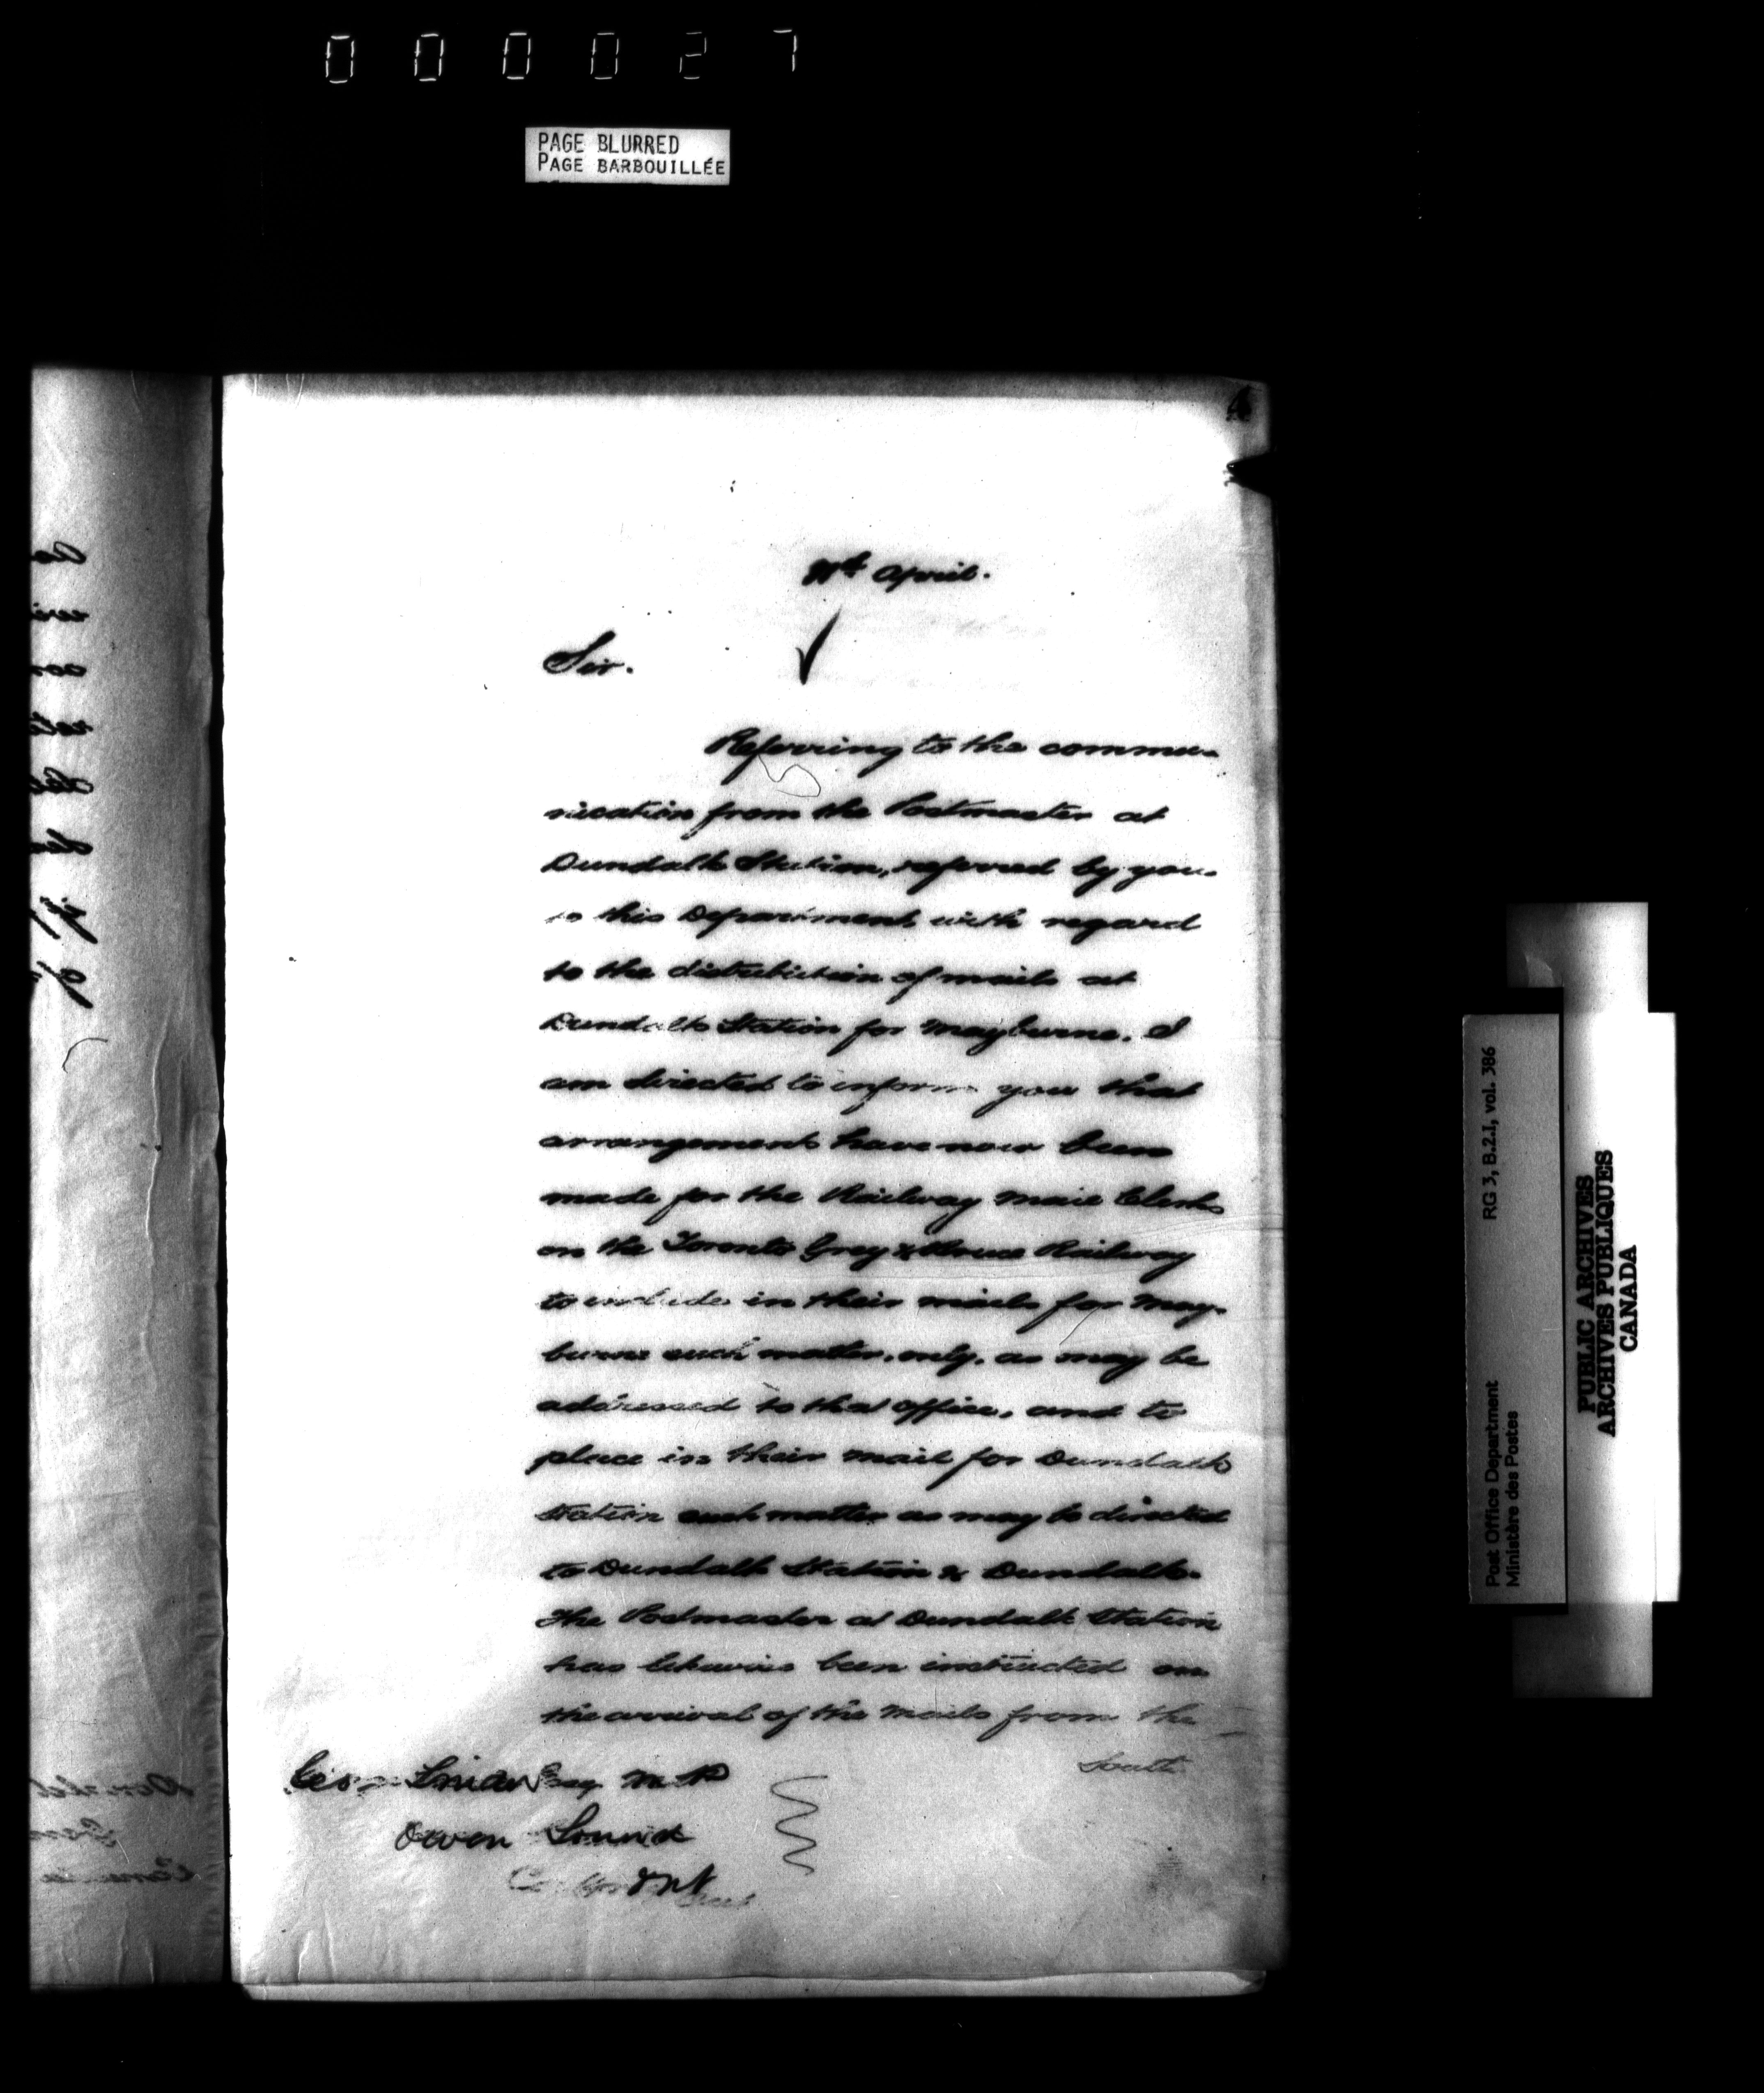 000027
PAGE BLURRED
PAGE BARBOUILLÉE
April.
Sir.
Referring to the commu-
nication from the Postmaster at
Dundalk Station, referred by you
to this Department, with regard
to the distribution of mails at
Dundalk Station for Mayburne. I
am directed to inform you that
arrangements have now been
made for the Railway Mail Clerks
on the Toronto Grey & Bruce Railway
to include in their mails for May-
burne such matter, only, as may be
addressed to that office, and to
place in their mail for Dundalk
Station such matter as may be directed
to Dundalk Station & Dundalk.
The Postmaster at Dundalk Station
has likewise been instructed on
the arrival of the mails from the
South
Snider Esq M.P
Owen Sound
Ont
Post Office Department RG 3, B.2.I, vol. 386
Ministère des Postes
PUBLIC ARCHIVES
ARCHIVES PUBLIQUES
CANADA